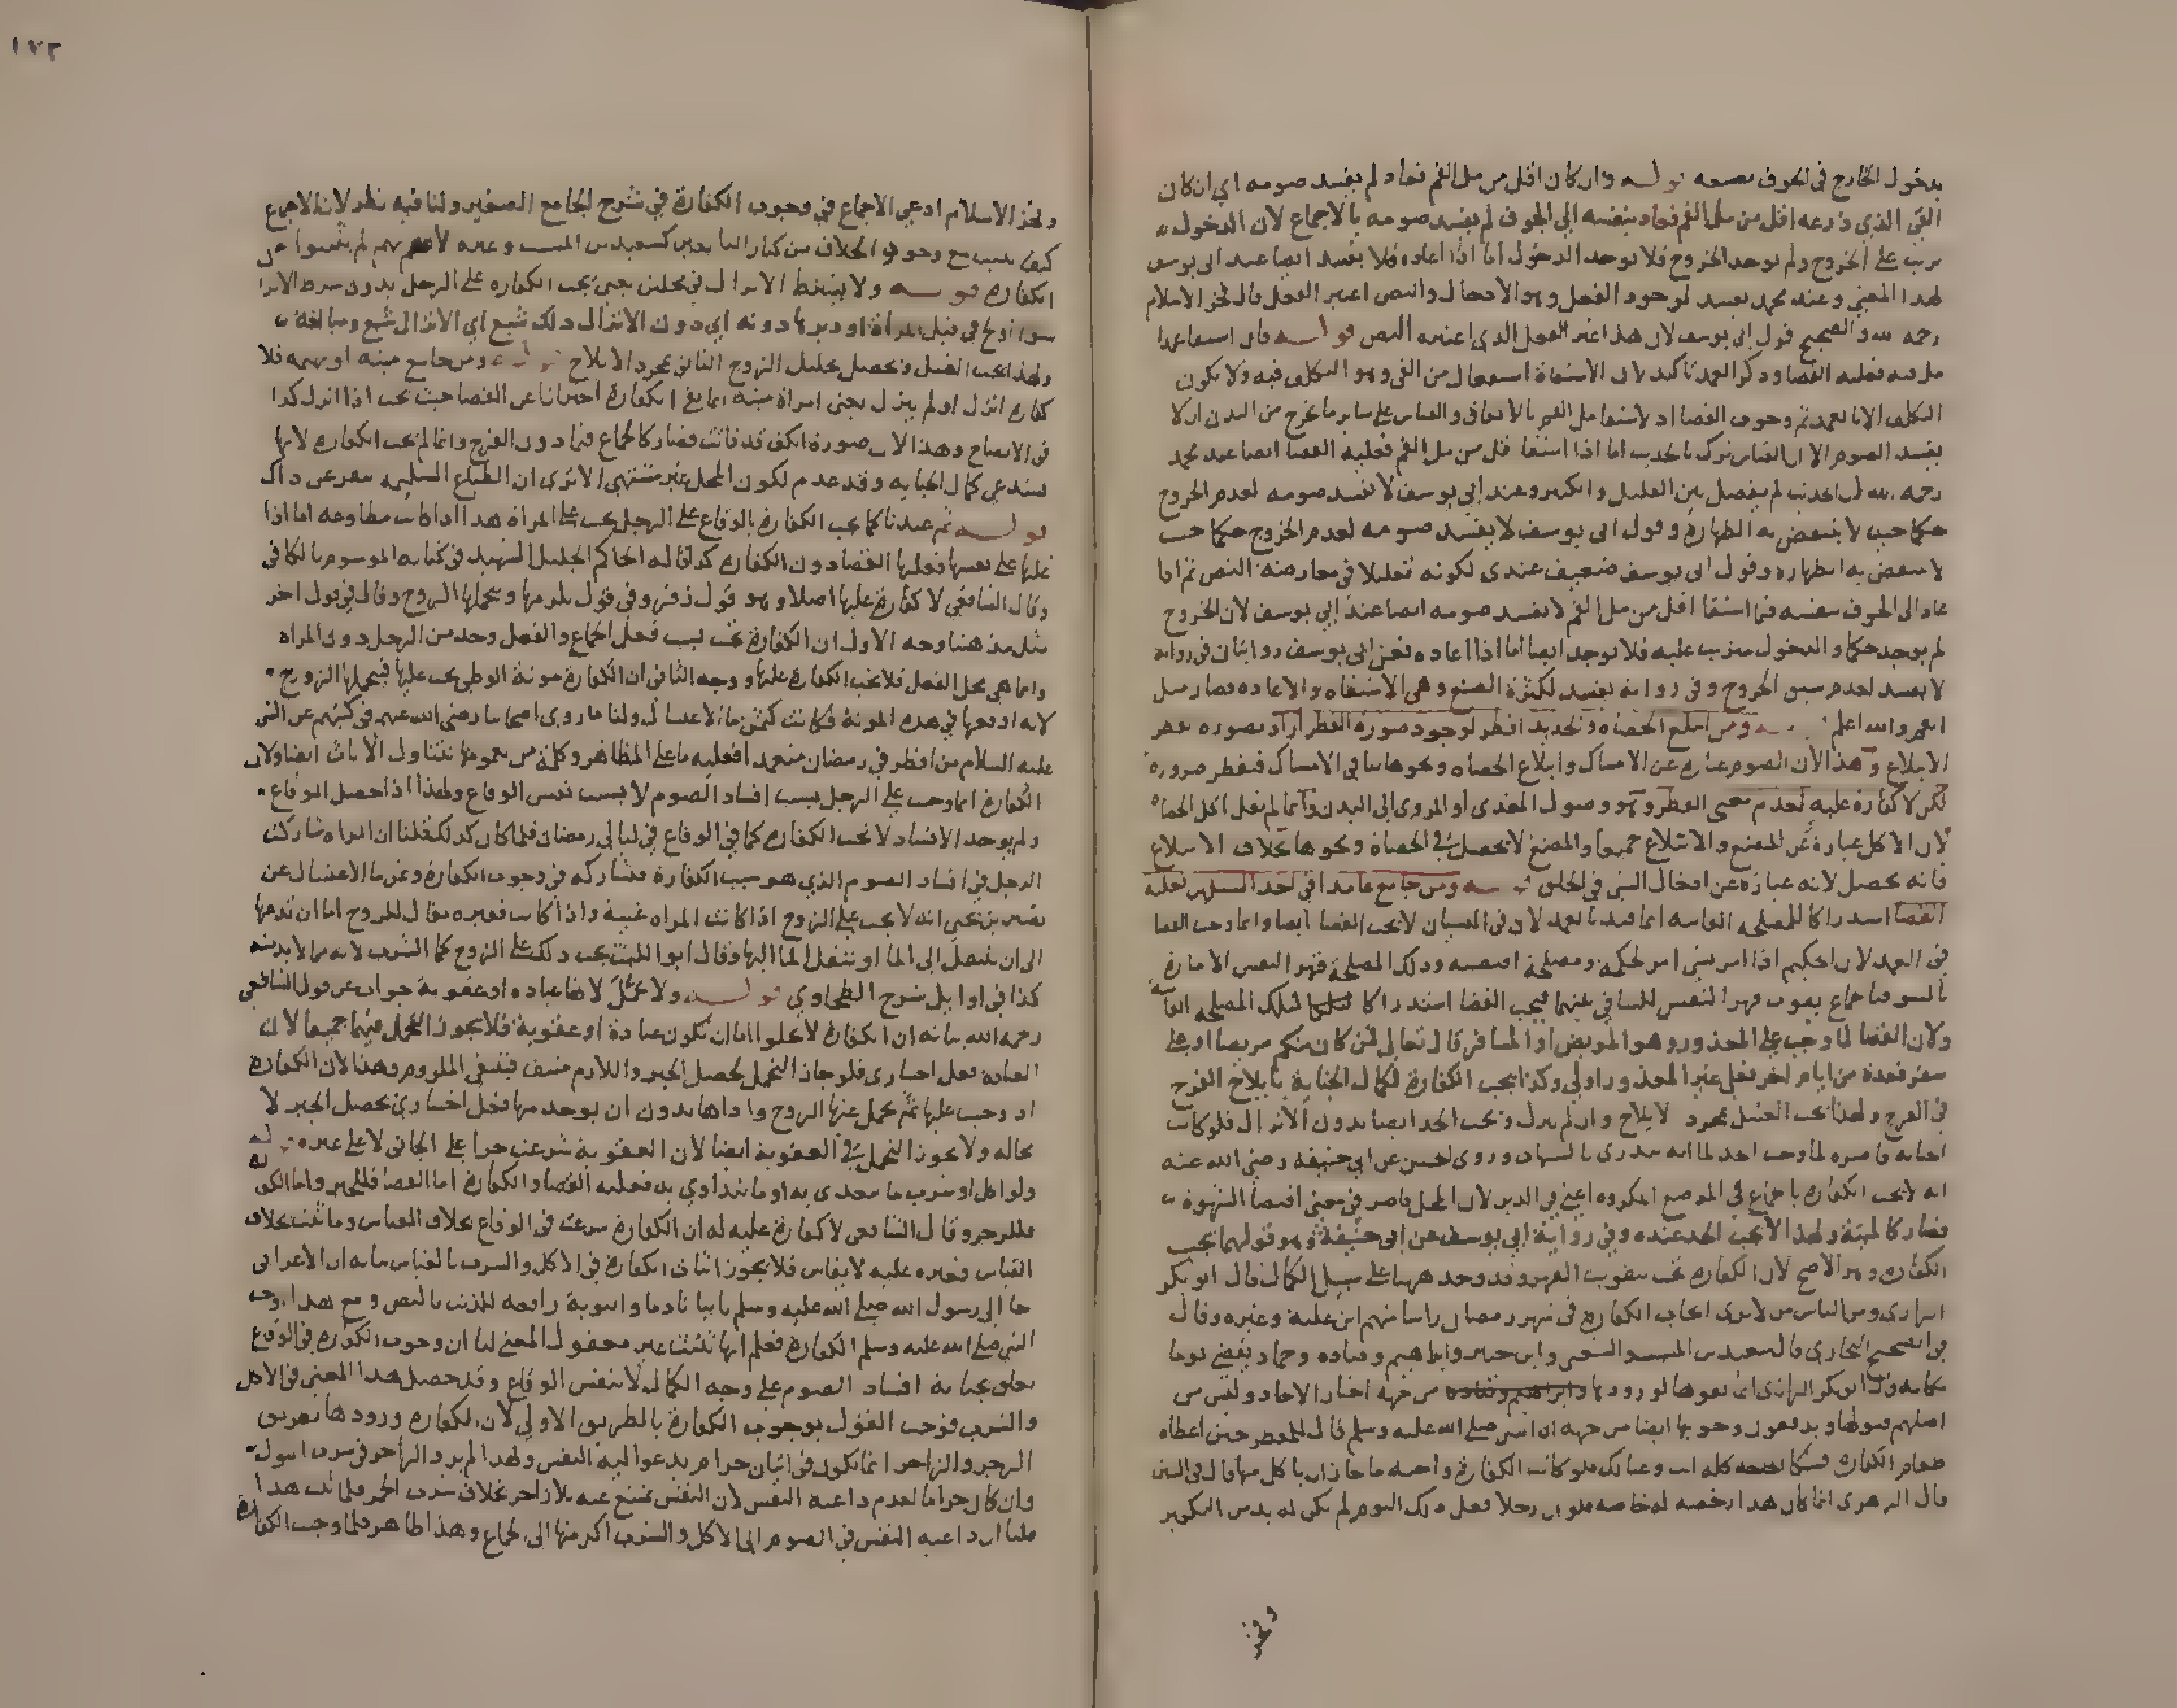 بدخول الخارج في الجوف بصنعه قوله وان كان اقل من مل الفم فعاد لم يفسد صومه اي ان كان
القي الذي ذرعه اقل من مل الفم فعاد بنفسه الى الجوف لم يفسد صومه بالاجماع لان الدخول
مرتب على الخروج ولم يوجد الخروج فلا يوجد الدخول اما اذا اعاده فلا يفسد ايضا عند ابي يوسف
لهذا المعنى وعند محمد يفسد لوجود الفعل وهو الادخال والنص اعتبر الفعل قال فخر الاسلام
رحمه الله والصحيح قول ابي يوسف لان هذا غير الفعل الذي اعتبره النص قوله فان استقا عمدا
مل فيه فعليه القضا وذكر العمد تاكيد لان الاستقاة استفعال من القي وهو التكلف فيه ولا يكون
التكلف الا بالعمد ثم وجوب القضا اذا استقا مل الفم بالاتفاق والقياس على ساير ما يخرج من البدن ان لا
يفسد الصوم الا ان القياس ترك بالحديث اما اذا استقا اقل من مل الفم فعليه القضا ايضا عند محمد
رحمه الله لان الحديث لم يفصل بين القليل والكثير وعند ابي يوسف لا يفسد صومه لعدم الخروج
حكما حيث لا ينتقض به الطهارة وقول ابي يوسف لا يفسد صومه لعدم الخروج حكما حيث
لا ينتقض به الطهاره وقول ابي يوسف ضعيف عندي لكونه تعليلا في معارضة النص ثم اذا
عاد الى الجوف بنفسه فيما استقا اقل من مل الفم لا يفسد صومه ايضا عند ابي يوسف لان الخروج
لم يوجد حكما والدخول مترتب عليه فلا يوجد ايضا اما اذا اعاده فعن ابي يوسف روايتان في رواية
لا يفسد لعدم سبق الخروج وفي رواية يفسد لكثرة الصنع وهي الاستقاه والاعاده فصار مل
الفم والله اعلم قوله ومن ابتلع الحصاه والحديد افطر لوجود صورة الفطر اراد بصوره الفطر
الابتلاع وهذا لان الصوم عبارة عن الامساك وابتلاع الحصاه ونحوها ينافي الامساك فيفطر ضرورة
لكن لا كفارة عليه لعدم معنى الفطر وهو وصول المغذي او المروي الى البدن وانما لم يقل اكل الحصاة
لان الاكل عبارة عن المضغ والابتلاع جميعا والمضغ لا يحصل في الحصاة ونحوها بخلاف الابتلاع
فانه يحصل لانه عبارة عن ادخال الشي في الحلق قوله ومن جامع عامدا في احد السبيلين فعليه
القضا استدراكا للمصلحه الفايته انما قيد بالعمد لان في النسيان لا يجب القضا ايضا وانما وجب القضا
في العمد لان الحكيم اذا امر بشي امر لحكمة ومصلحة اقتضته وذلك المصلحة قهر النفس الامارة
بالسو فبالجماع يفوت قهر النفس للتنافي بينهما فيجب القضا استدراكا لتلك المصلحه الفايتة
ولان القضا لما وجب على المعذور وهو المريض او المسافر قال تعالى فمن كان منكم مريضا او على
سفر فعدة من ايام اخر فعلى غير المعذور اولى وكذا يجب الكفارة لكمال الجناية بايلاج الفرج
في الفرج ولهذا يجب الغسل بمجرد الايلاج وان لم ينزل ويجب الحد ايضا بدون الانزال فلو كانت
الجناية قاصره لما وجب الحد لما انه يندري بالشبهات وروى الحسن عن ابي حنيفة رضي الله عنه
انه لا يجب الكفاره بالجماع في الموضع المكروه اعني في الدبر لان المحل قاصر في معنى اقتضا الشهوة
فصار كالميتة ولهذا لا يجب الحد عنده وفي رواية ابي يوسف عن ابي حنيفة وهو قولهما يجب
الكفاره وهو الاصح لان الكفاره تجب بتفويت الصوم وقد وجد ههنا على سبيل الكمال قال ابو بكر
الرازي ومن الناس من لا يرى ايجاب الكفارة في شهر رمضان راسا منهم ابن علية وغيره وقال
في الصحيح البخاري قال سعيد بن المسيب والشعبي وابن جبير وابراهيم وقتاده وحماد يقضي يوما
مكانه وقال ابو بكر الرازي انما نفوها لورودها من جهة اخبار الاحاد وليس من
اصلهم قبولها وقد نقول وجوبها ايضا من جهة ان النبي صلى الله عليه وسلم قال للمفطر حين اعطاه
طعام الكفارة كله انت وعيالك فلو كانت الكفارة واجبه ما جاز ان ياكل منها وقال في السنن
قال الزهري انما كان هذا رخصه له خاصه فلو ان رجلا فعل ذلك اليوم لم يكن له بد من التكفير
وفخر
١٧٢
وفخر الاسلام ادعى الاجماع في وجوب الكفارة في شرح الجامع الصغير ولنا فيه نظر لان الاجماع
كيف يثبت مع وجود الخلاف من كبار التابعين كسعيد بن المسيب وغيره
الكفارة قوله ولا يشترط الانزال في المحلين يعني يجب الكفاره على الرجل بدون شرط الانزال
سوا اولج في قبل المراة او دبرها دونه اي دون الانزال ذلك شبع اي الانزال شبع ومبالغة
ولهذا يجب الغسل ويحصل تحليل الزوج الثاني بمجرد الايلاج قوله ومن جامع ميتة او بهيمه فلا
كفاره انزل او لم ينزل يعني امراة ميتة انما نفى الكفارة احترازا عن القضا حيث يجب اذا انزل كذا
في الايضاح وهذا لان صورة الكف قد فاتت فصار كالجماع فيما دون الفرج وانما لم يجب الكفاره لانها
تستدعي كمال الجنايه وقد عدم لكون المحل غير مشتهى الا ترى ان الطباع السليمه تنفر عن ذلك
قوله ثم عندنا كما يجب الكفارة بالوقاع على الرجل يجب على المراة هذا اذا كانت مطاوعه اما اذا
غلبها على نفسها فعليها القضا دون الكفاره كذا قاله الحاكم الجليل الشهيد في كتابه الموسوم بالكافي
وقال الشافعي لا كفارة عليها اصلا وهو قول زفر وفي قول يلزمها ويتحملها الزوج وقال في قول اخر
مثل مذهبنا وجه الاول ان الكفارة تجب بسبب فعل الجماع والفعل وجد من الرجل دون المراه
وانما هي محل الفعل فلا يجب الكفارة عليها ووجه الثاني ان الكفارة مونة الوطي يجب عليها فيتحملها الزوج
لانه اوقعها في هذه المونة فكانت كثمن ما الاغتسال ولنا ما روى اصحابنا رضي الله عنهم في كتبهم عن النبي
عليه السلام من افطر في رمضان متعمدا فعليه ما على المظاهر وكلمة من بعمومها تتناول الاناث ايضا ولان
الكفارة انما وجب على الرجل بسبب افساد الصوم لا بسبب نفس الوقاع ولهذا اذا حصل الوقاع
ولم يوجد الافساد لا تجب الكفاره كما في الوقاع في ليالي رمضان فلما كان كذلك قلنا ان المراه شاركت
الرجل في افساد الصوم الذي هو سبب الكفارة فتشاركه في وجوب الكفارة وثمن ما الاغتسال عن
نصير بن يحيى انه لا يجب على الزوج اذا كانت المراه غنية واذا كانت فقيره يقال للزوج اما ان تدعها
الى ان تنتقل الى الما او تنقل الما اليها وقال ابو الليث يجب ذلك على الزوج كما الشرب لانه مما لا بد منه
كذا في اوايل شرح الطحاوي قوله ولا يتحمل لانها عباده او عقوبة جواب عن قول الشافعي
رحمه الله بيانه ان الكفارة لا يخلوا اما ان تكون عبادة او عقوبة فلا يجوز التحمل فيهما جميعا لان
العبادة فعل اختياري فلو جاز التحمل لحصل الجبر واللازم منتف فينتفي الملزوم وهذا لان الكفارة
اذا وجب عليها ثم يحمل عنها الزوج واداها بدون ان يوجد منها فعل اختياري يحصل الجبر لا
محاله ولا يجوز التحمل في العقوبة ايضا لان العقوبة شرعت جزا على الجاني لا على غيره قوله
ولو اكل او شرب ما يتغدى به او ما يتداوى به فعليه القضا والكفارة اما القضا فللجبر واما الكفارة
فللزجر وقال الشافعي لا كفارة عليه له ان الكفارة شرعت في الوقاع بخلاف القياس وما ثبت بخلاف
القياس فغيره عليه لا يقاس فلا يجوز اثبات الكفارة في الاكل والشرب بالقياس بيانه ان الاعرابي
جا الى رسول الله صلى الله عليه وسلم تايبا نادما والتوبة رافعه للذنب بالنص ومع هذا اوجب
النبي صلى الله عليه وسلم الكفارة فعلم انها تثبت غير معقول المعنى لنا ان وجوب الكفارة في الوقاع
تعلق بجناية افساد الصوم على وجه الكمال لا بنفس الوقاع وقد حصل هذا المعنى في الاكل
والشرب فوجب القول بوجوب الكفارة بالطريق الاولى لان الكفاره ورودها بعريق
الزجر والزاجر انما يكون في اتيان حرام يدعوا اليه النفس ولهذا لم يرد الزاجر في شرب البول
وان كان حراما لعدم داعية النفس لان النفس يمتنع عنه بلا زاجر بخلاف شرب الخمر فلما ثبت هذا
قلنا ان داعيه النفس في الصوم الى الاكل والشرب اكثر منها الى الجماع وهذا ظاهر فلما وجب الكفارة